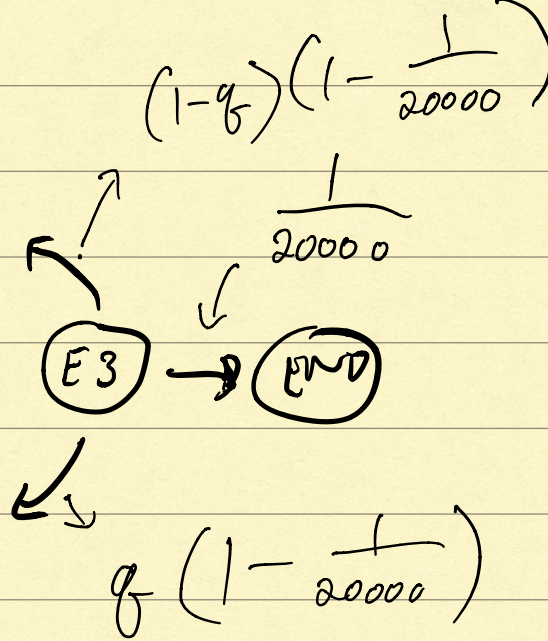 (1-q)(1 - 1/20000)
1/20000
E3
END
q(1 - 1/20000)